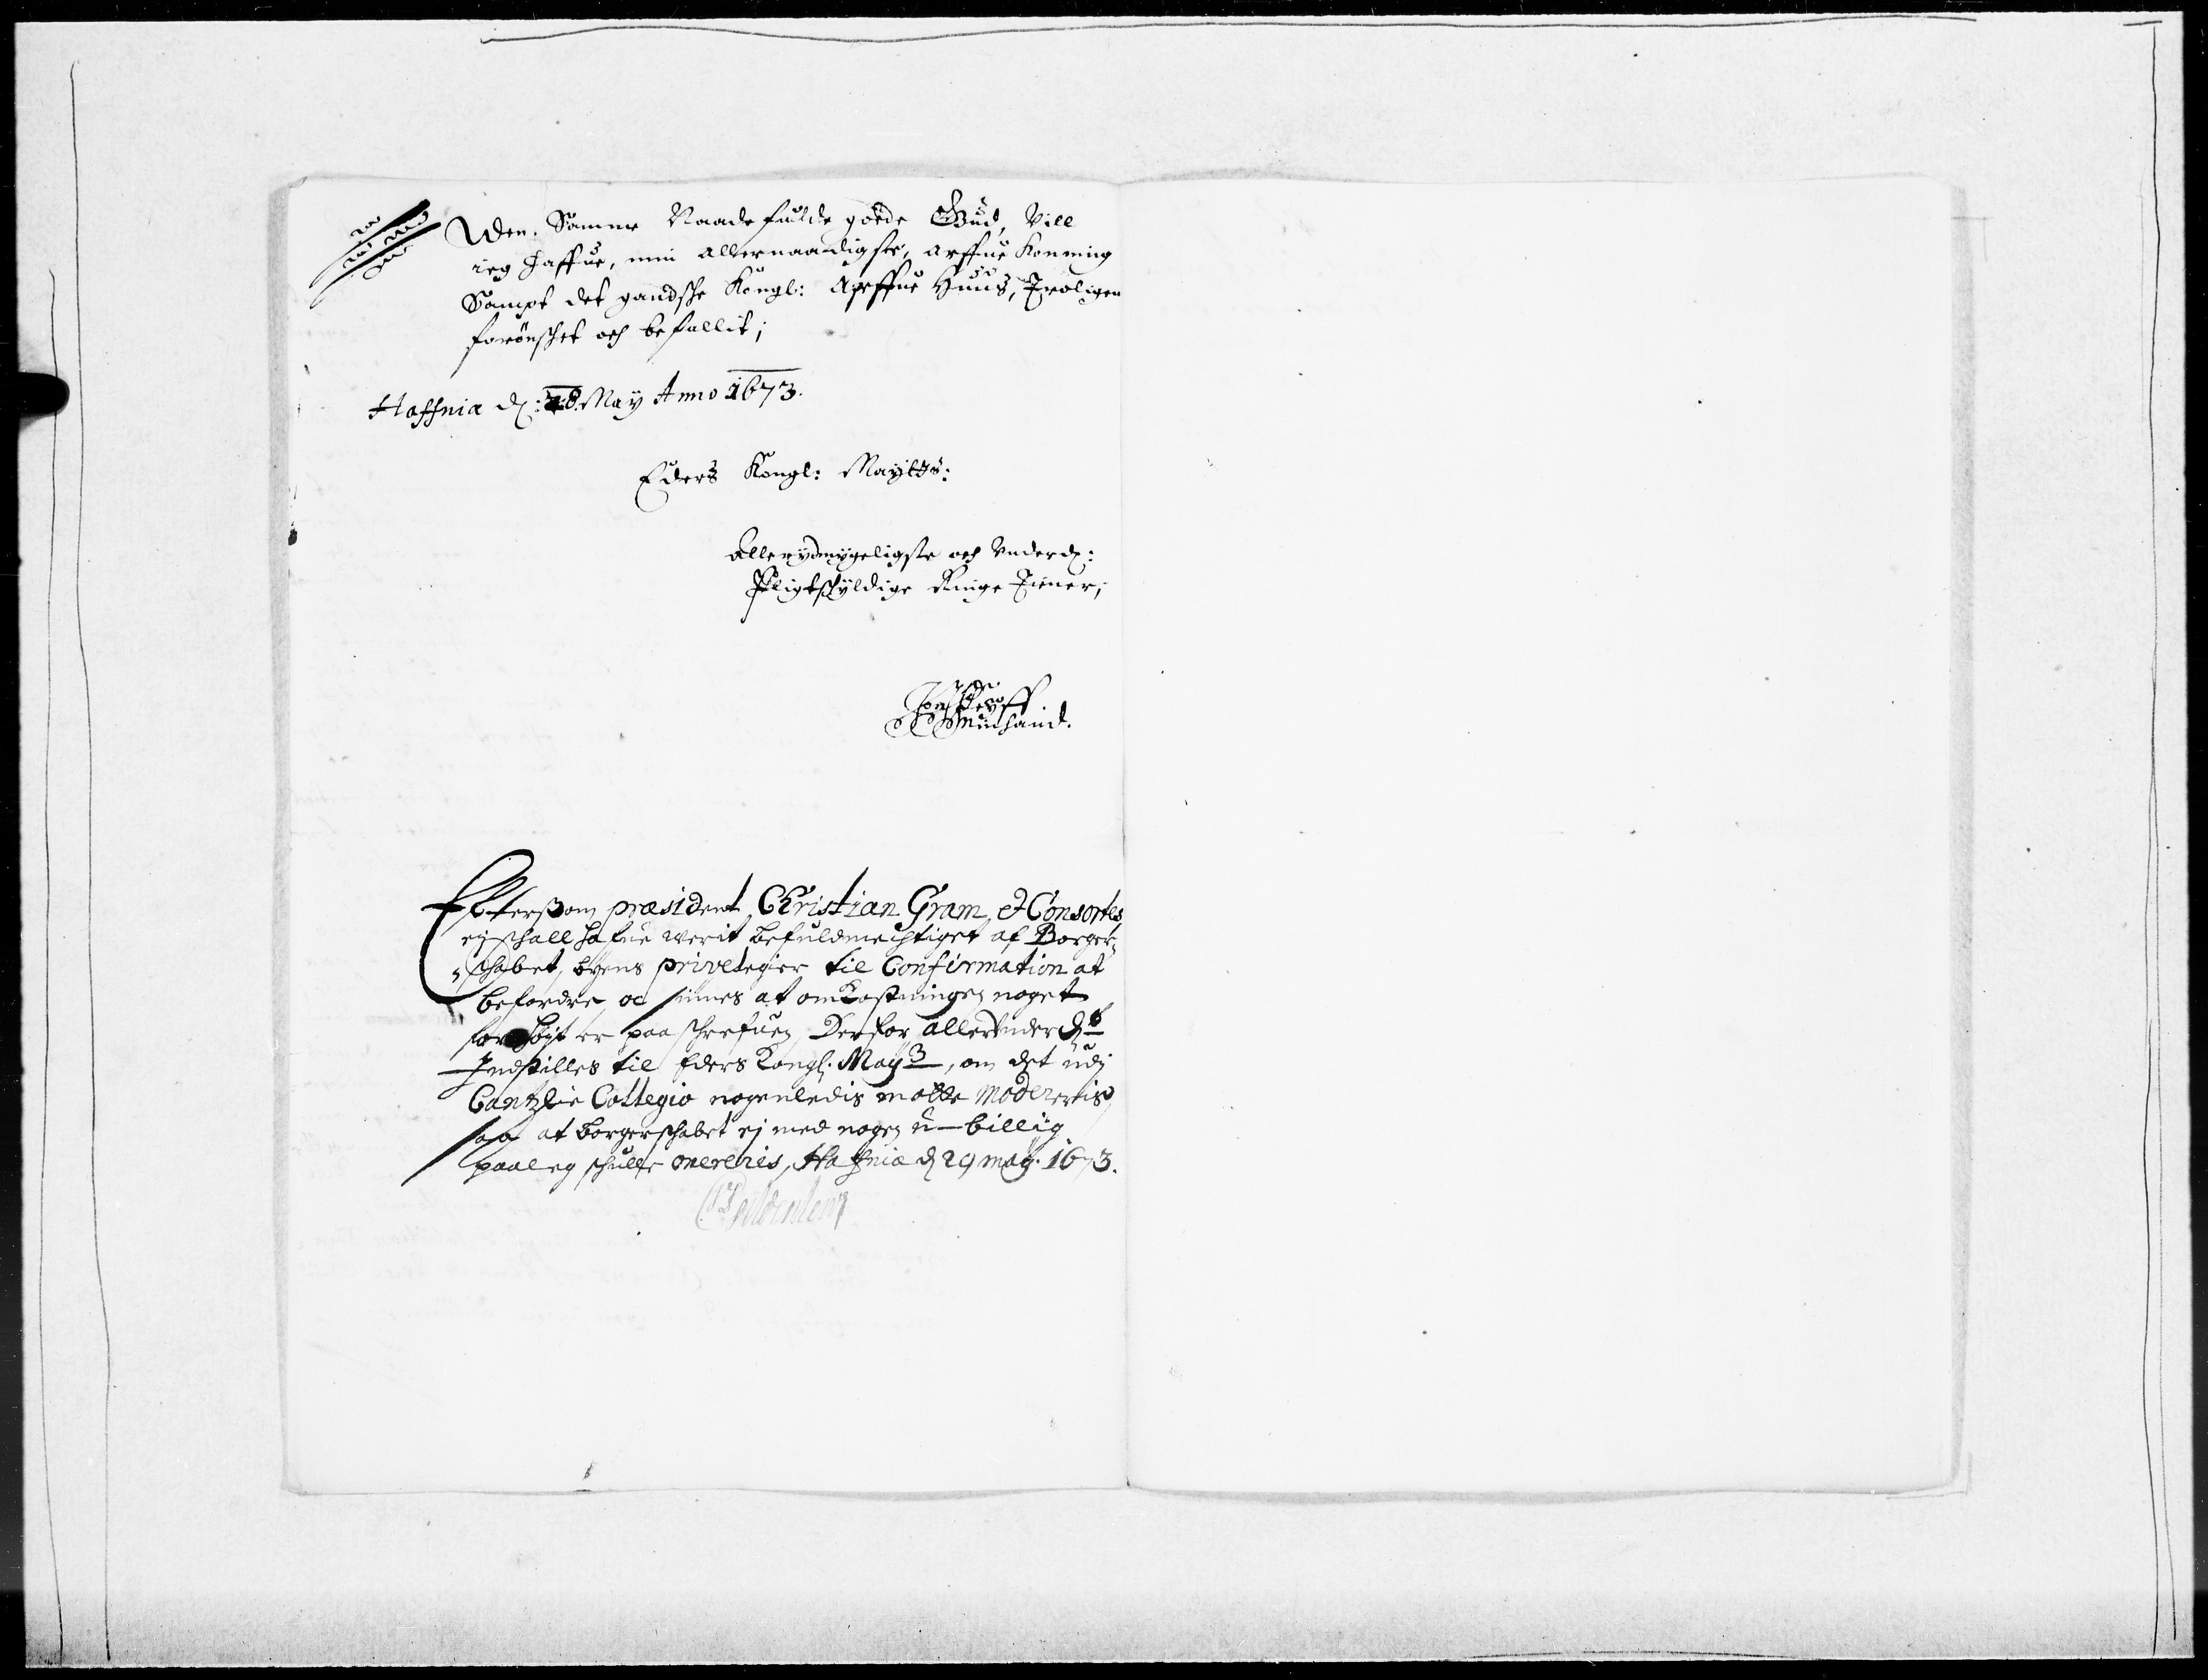 Den Samme Naadefulde goede Gud, Vill
ieg haffue, min allernaadigste, arffue Konning
Sampt det gandsche Kongl: Arffue Huus, Troligen
forønschet och befallit;
Haffnia d: 28. May Anno 1673.
Eders Kongl: Mayttz:
Allerydmygeligste och Underd:
Pligtskyldige Ringe Tiener;
Efftersom præsident Christian Gram, et Consortes
ej schall hafue werit befuldmechtiget af Borger-
schabet, byens privelegier til Confirmation at
befordre, oc siunes at omkostningen noget
for høyt er paaschrefuen, Derfor allerunderd:
Indstilles til Eders Kongl: May, om det udj
Cantzlie Collegio nogenledis motte modereris,
saa at borgerschabet ej med nogen u-billig
paaleg schulle onereris, Hafniæ d 29 may. 1673.